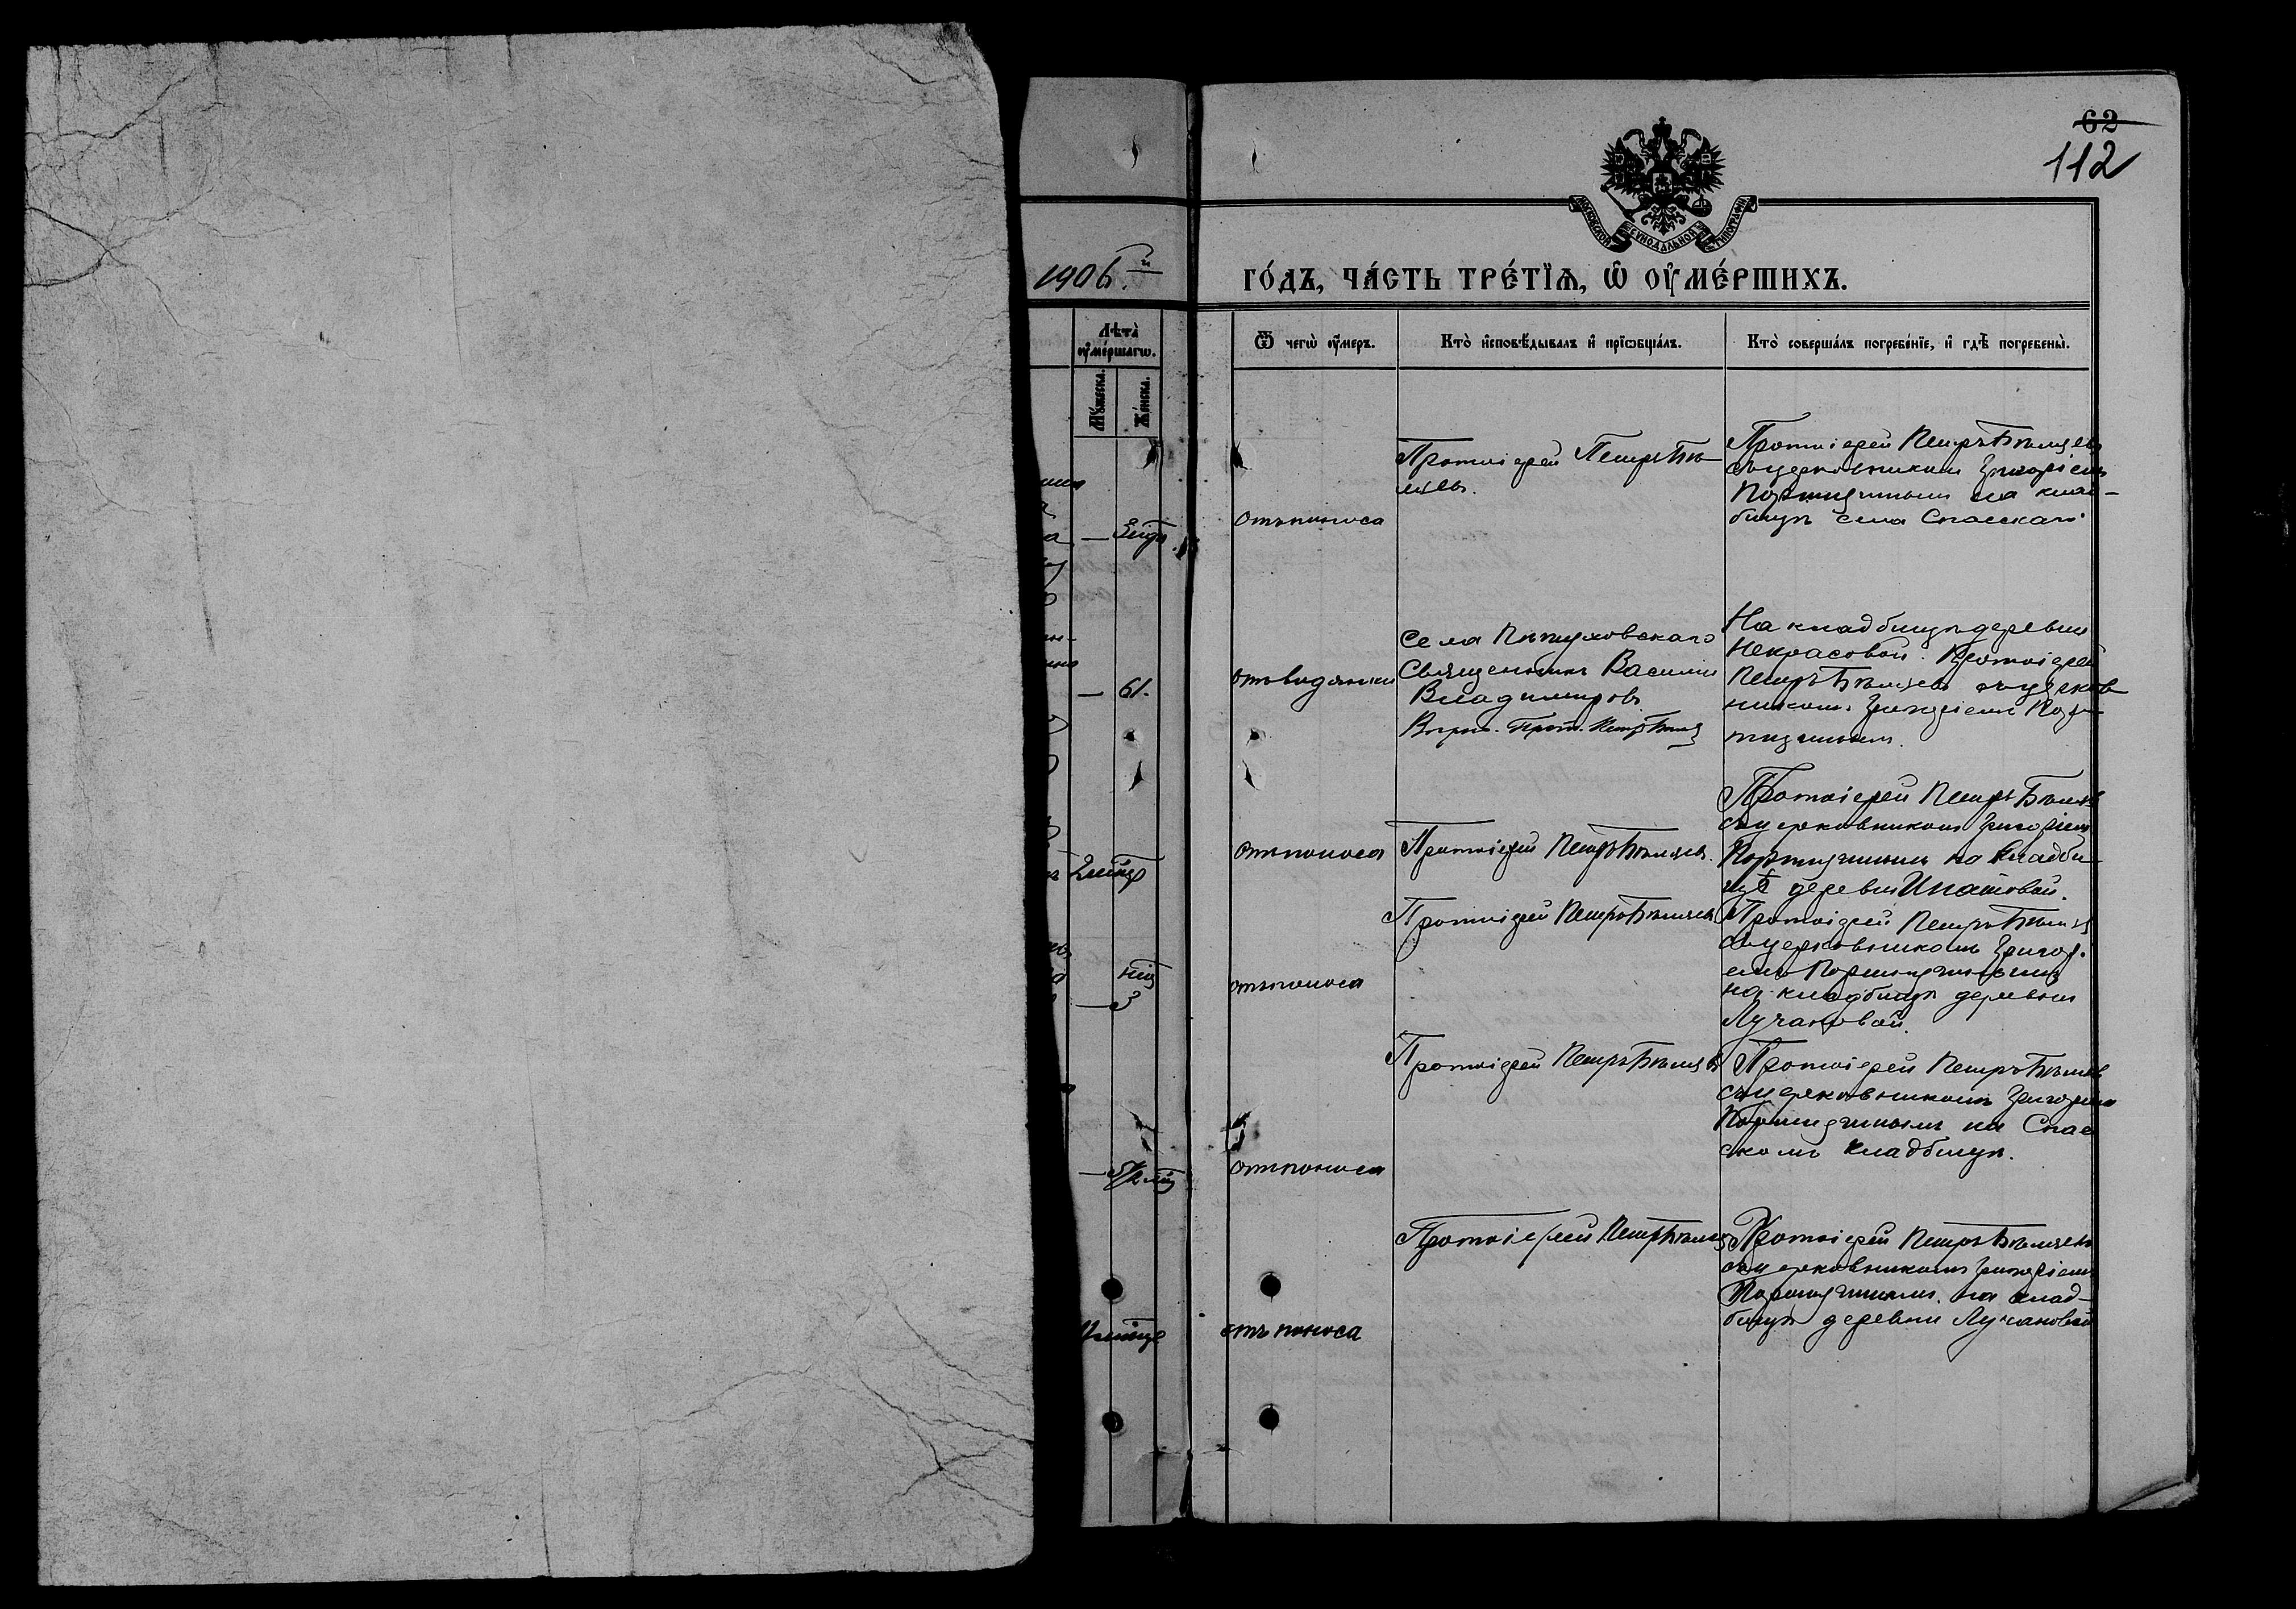 62
112
МОСКОВСКОЙ СѴНОДАЛЬНОЙ ТИПОГРАФІИ
1906 г.
ГО́ДЪ, ЧА́СТЬ ТРЕ́ТЇѦ, Ѡ҆ ОУ҆МЕ́РШИХЪ.
Лѣта̀ оу҆ме́ршагѡ.
Мꙋ́жеска.
Же́нска.
Ѿ чегѡ̀ оу҆́меръ.
Кто̀ и҆сповѣ́дывалъ и҆ прїѡбща́лъ.
Кто̀ соверша́лъ погребе́нїе, и҆ гдѣ̀ погребены̀.
отъ поноса
Протоіерей Петръ Бѣ-
ляевъ.
Протоіерей Петръ Бѣляевъ
съ церковникомъ Григоріемъ
на клад-
бищѣ села Спасскаго
61.
отъ водянки
Села Пѣтуховскаго
Священникъ Василій
Владимировъ.
Прот. Петръ Бѣляев
На кладбищѣ деревни
Некрасовой. Протоіерей
Петръ Бѣляевъ съ церков
никомъ Григоріемъ
отъ поноса
Протоіерей Петръ Бѣляевъ.
Протоіерей Петръ Бѣляевъ
съ церковникомъ Григоріемъ
на кладби-
щѣ деревни Ипатовой.
отъ поноса
Протоіерей Петръ Бѣляевъ
Протоіерей Петръ Бѣляев
съ церковникомъ Григор-
емъ
на кладбищѣ деревни
Лучановой.
отъ поноса
Протоіерей Петръ Бѣляевъ
Протоіерей Петръ Бѣляевъ
съ церковникомъ Григоріемъ
на Спас
скомъ кладбищѣ.
отъ поноса
Протоіерей Петръ Бѣляев
Протоіерей Петръ Бѣляевъ
съ церковникомъ Григоріемъ
на клад-
бищѣ деревни Лучановой